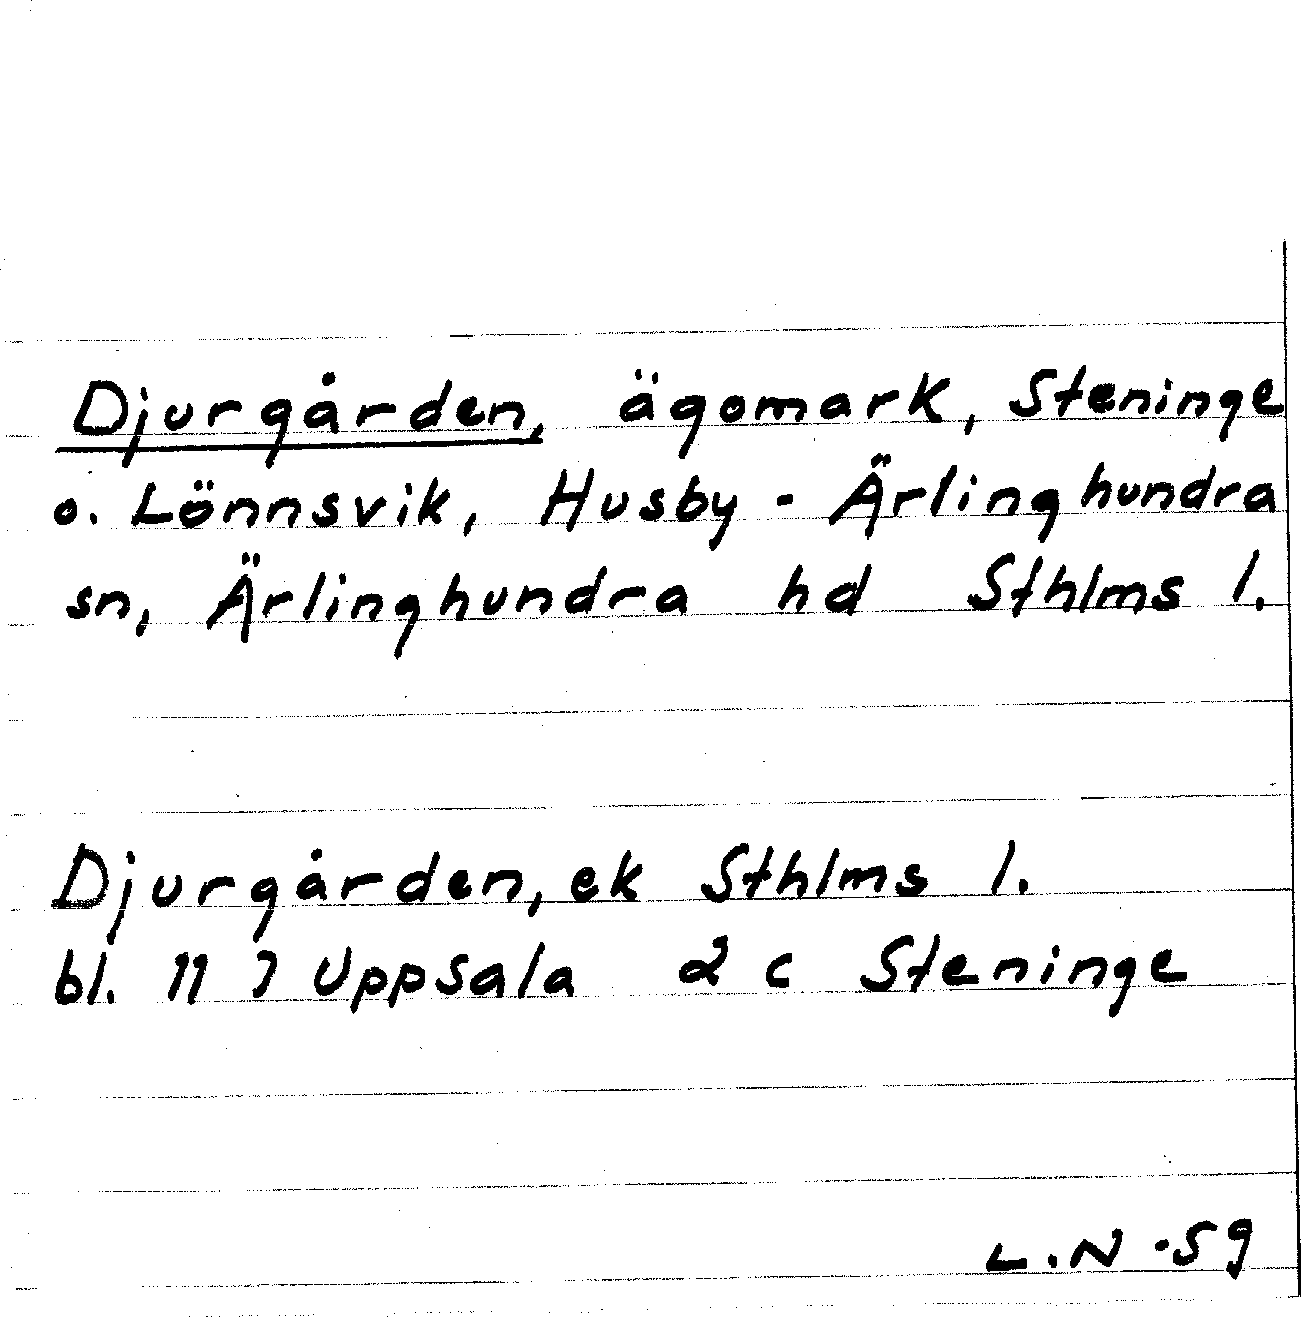 Djurgården, ägomark, Steninge
o. Lönnsvik, Husby - Ärlinghundra
sn, Ärlinghundra hd Sthlms l.
Djurgården, ek Sthlms l.
bl. 11 7 Uppsala 2 c Steninge
L.N -59